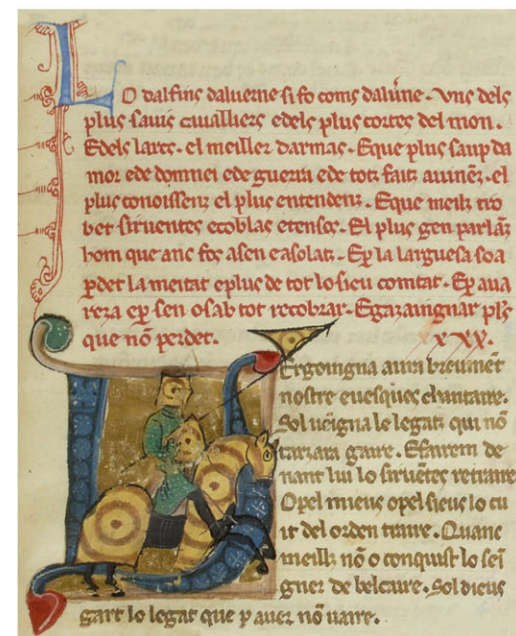 LO dalfins daluerne si fo coms daluĩne. Vns dels
plus sauis cuualliers edels plus cortes del mon.
Edels larcs. el meiller darmas. Eque plus saup da
mor ede domnei ede guerra ede totz faitz auinẽz. el
plus conoissenz el plus entendenz. Eque meilz tro
bet siruentes ecoblas etensos. El plus gen parlãz
hom que anc fos asen easolatz. Eꝑ la larguesa soa
ꝑdet la meitat eplus de tot lo sieu comtat. Eꝑ aua
reza eꝑ sen osab tot recobrar. Egazaingnar pls
que nõ perdet. xxxv.
Vergoingna aura breumẽt
nostre euesques chantaire.
Sol uẽigna le legatz qui nõ
tarzara gaire. Efarem de
nant lui lo siruẽtes retraire
Opel mieus opel sieus lo cu
it del orden traire. Quanc
meillz nõ o conquist lo sei
gner de belcaire. Sol dieus
gart lo legat que ꝑ auer nõ uaire.